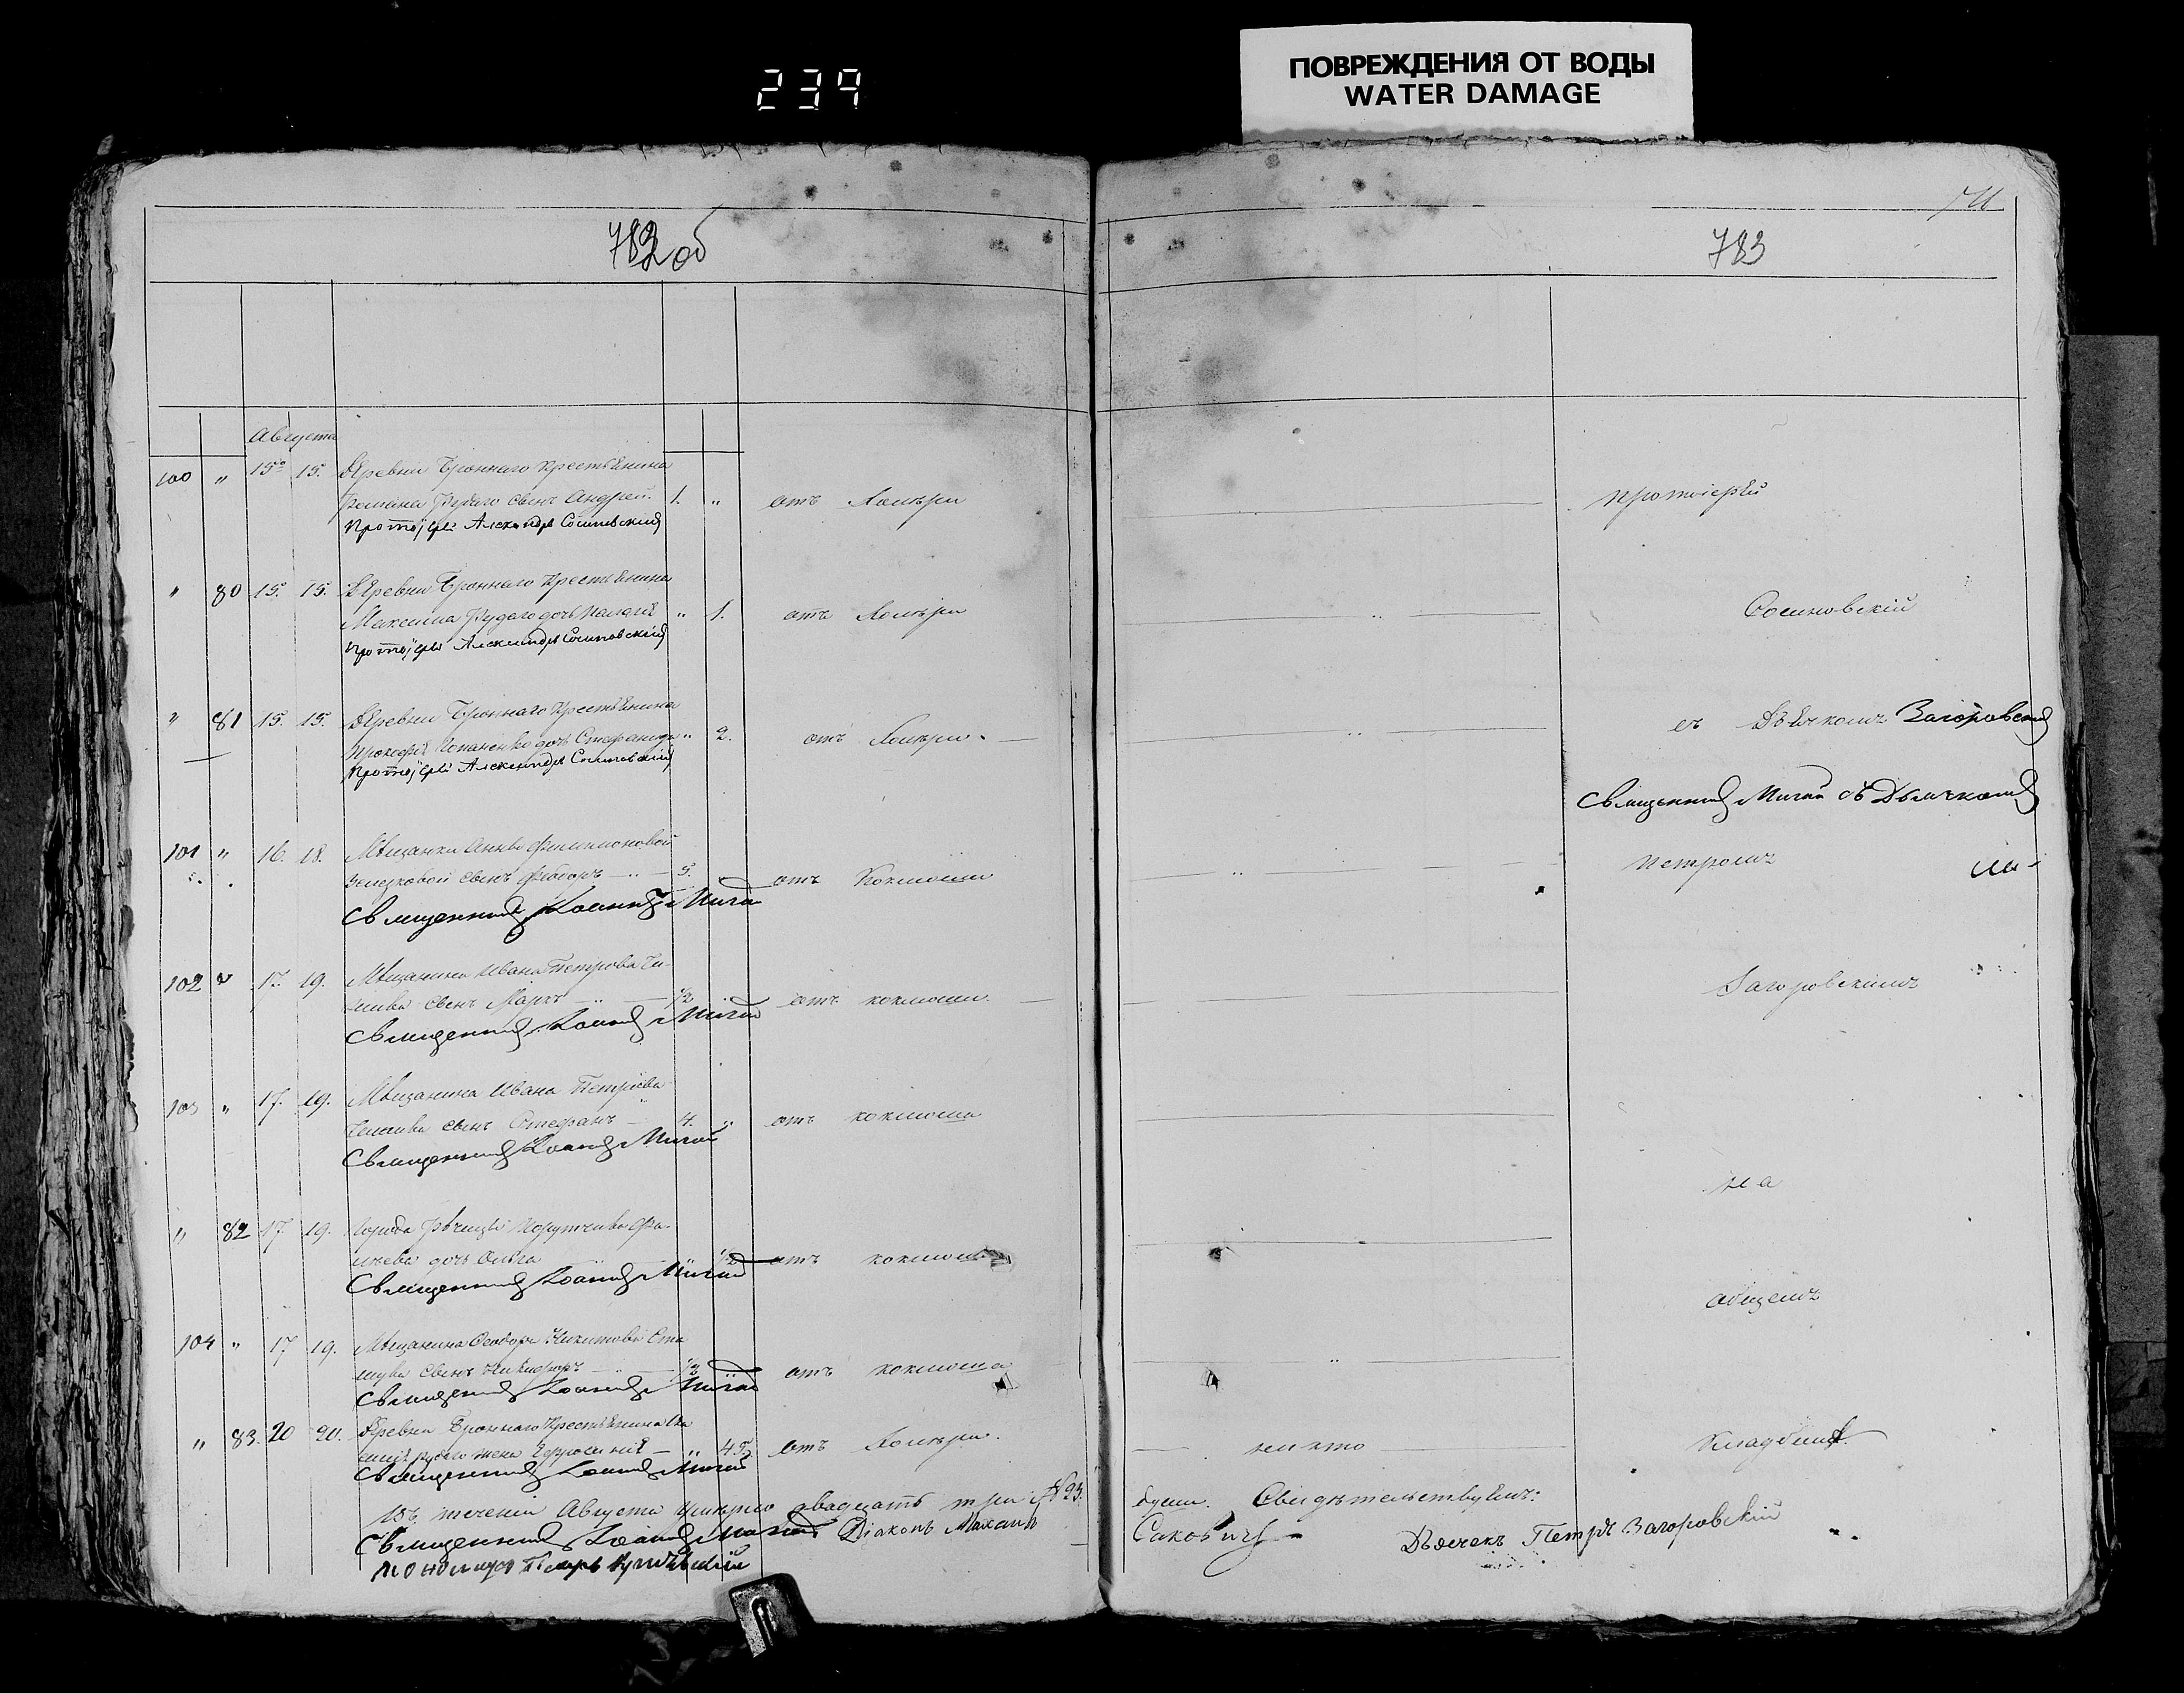 239
ПОВРЕЖДЕНИЯ ОТ ВОДЫ
WATER DAMAGE
782 об
783
Августа
100 " 15. 15. Деревни Броннаго крестьянина
Романа Рудаго сынъ Андрей. 1. " отъ Холеры
Протоіерей Александръ Сосиновскій
" 80 15. 15. Деревни Броннаго крестьянина
Максима Рудаго дочь Палагія " 1. отъ Холеры
Протоіерей Александръ Сосиновскій
" 81 15. 15. Деревни Броннаго крестьянина
дочь Стефанида " 2. отъ Холеры.
Протоіерей Александръ Сосиновскій
101 " 16. 18. Мѣщанки Анны Филимоновой
сынъ Ѳеодоръ 5. отъ Коклюша
Священникъ Іоаннъ Мигай
102 " 17. 19. Мѣщанина Ивана Петрова
сынъ Маркъ 1/2 отъ коклюша.
Священникъ Іоаннъ Мигай
103 " 17. 19. Мѣщанина Ивана Петрова
сынъ Стефанъ 4. " отъ коклюша
Священникъ Іоаннъ Мигай
" 82 17. 19. Города Рѣчицы
дочь Ольга отъ коклюша
Священникъ Іоаннъ Мигай
104 " 17 19. Мѣщанина Ѳеодора Никитова
сынъ Никифоръ 1/2 отъ коклюша
Священникъ Іоаннъ Мигай
" 83. 20 20. Деревни Броннаго крестьянина
Рудаго жена Ефросинія " 45. отъ Холеры.
Священникъ Іоаннъ Мигай
Въ теченіи Августа умерло двадцать три №23.
Священникъ Іоаннъ Мигай Діаконъ
Пономарь Петръ
Протоіерей
Сосиновскій
съ Дьячкомъ Загоровскій
Священникъ Мигай съ Дьячкомъ
Петромъ
Загоровскимъ
на
общемъ
никто
кладбищѣ.
души. Свидѣтельствуемъ:
Саковичъ Дьячекъ Петръ Загоровскій